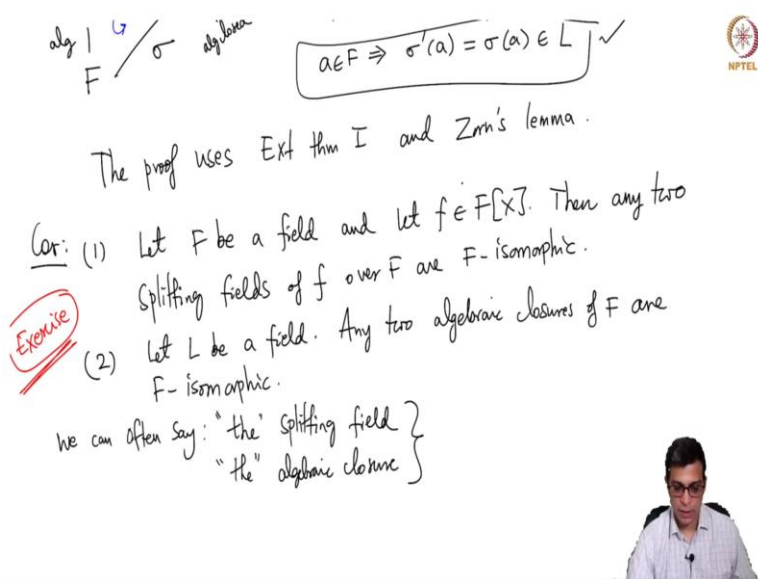 alg | σ alg closed
F
a ∈ F ⇒ σ'(a) = σ(a) ∈ L ✓
NPTEL
The proof uses Ext thm I and Zorn's lemma.
Cor: (1) Let F be a field and let f ∈ F[X]. Then any two
splitting fields of f over F are F-isomorphic.
Exercise
(2) Let L be a field. Any two algebraic closures of F are
F-isomorphic.
We can often say: "the" splitting field
"the" algebraic closure